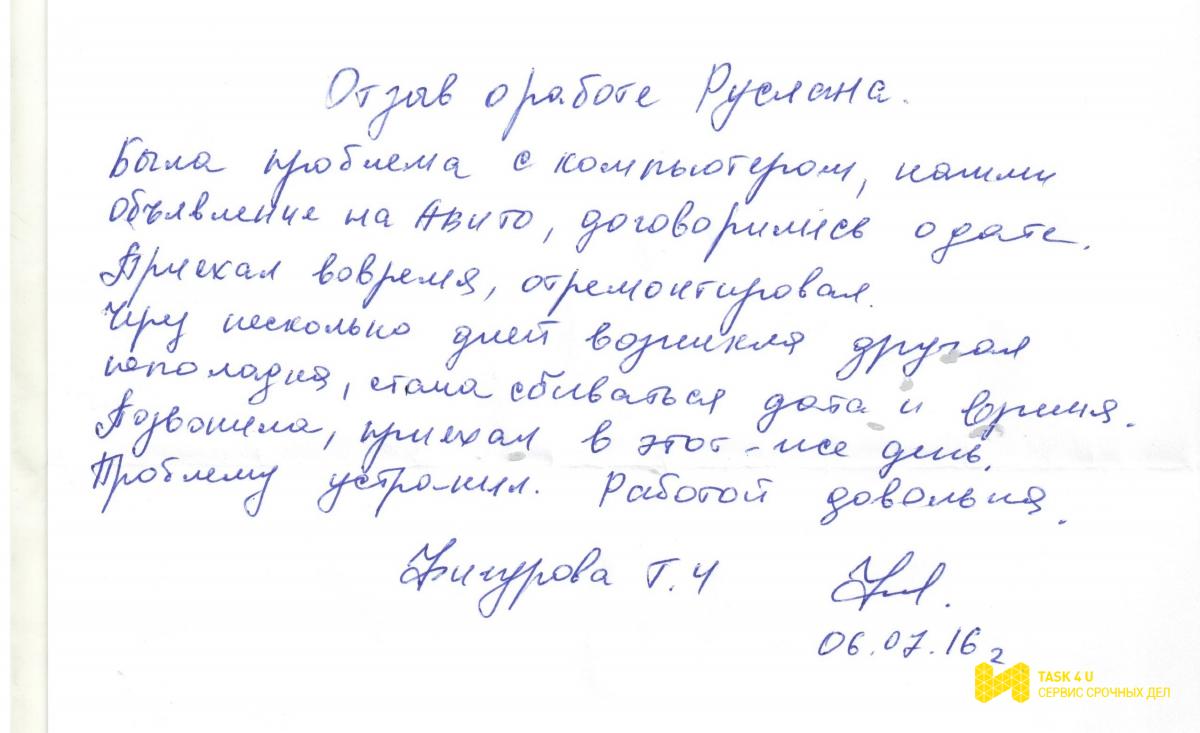 Отзыв о работе Руслана.
Была проблема с компьютером, нашли
объявление на Авито, договорились о дате.
Приехал вовремя, отремонтировал.
Через несколько дней возникла другая
неполадка, стала сбиваться дата и время.
Позвонила, приехал в этот-же день.
Проблему устранил. Работой довольна.
Т.Ч
06.07.16г
TASK 4 U
СЕРВИС СРОЧНЫХ ДЕЛ